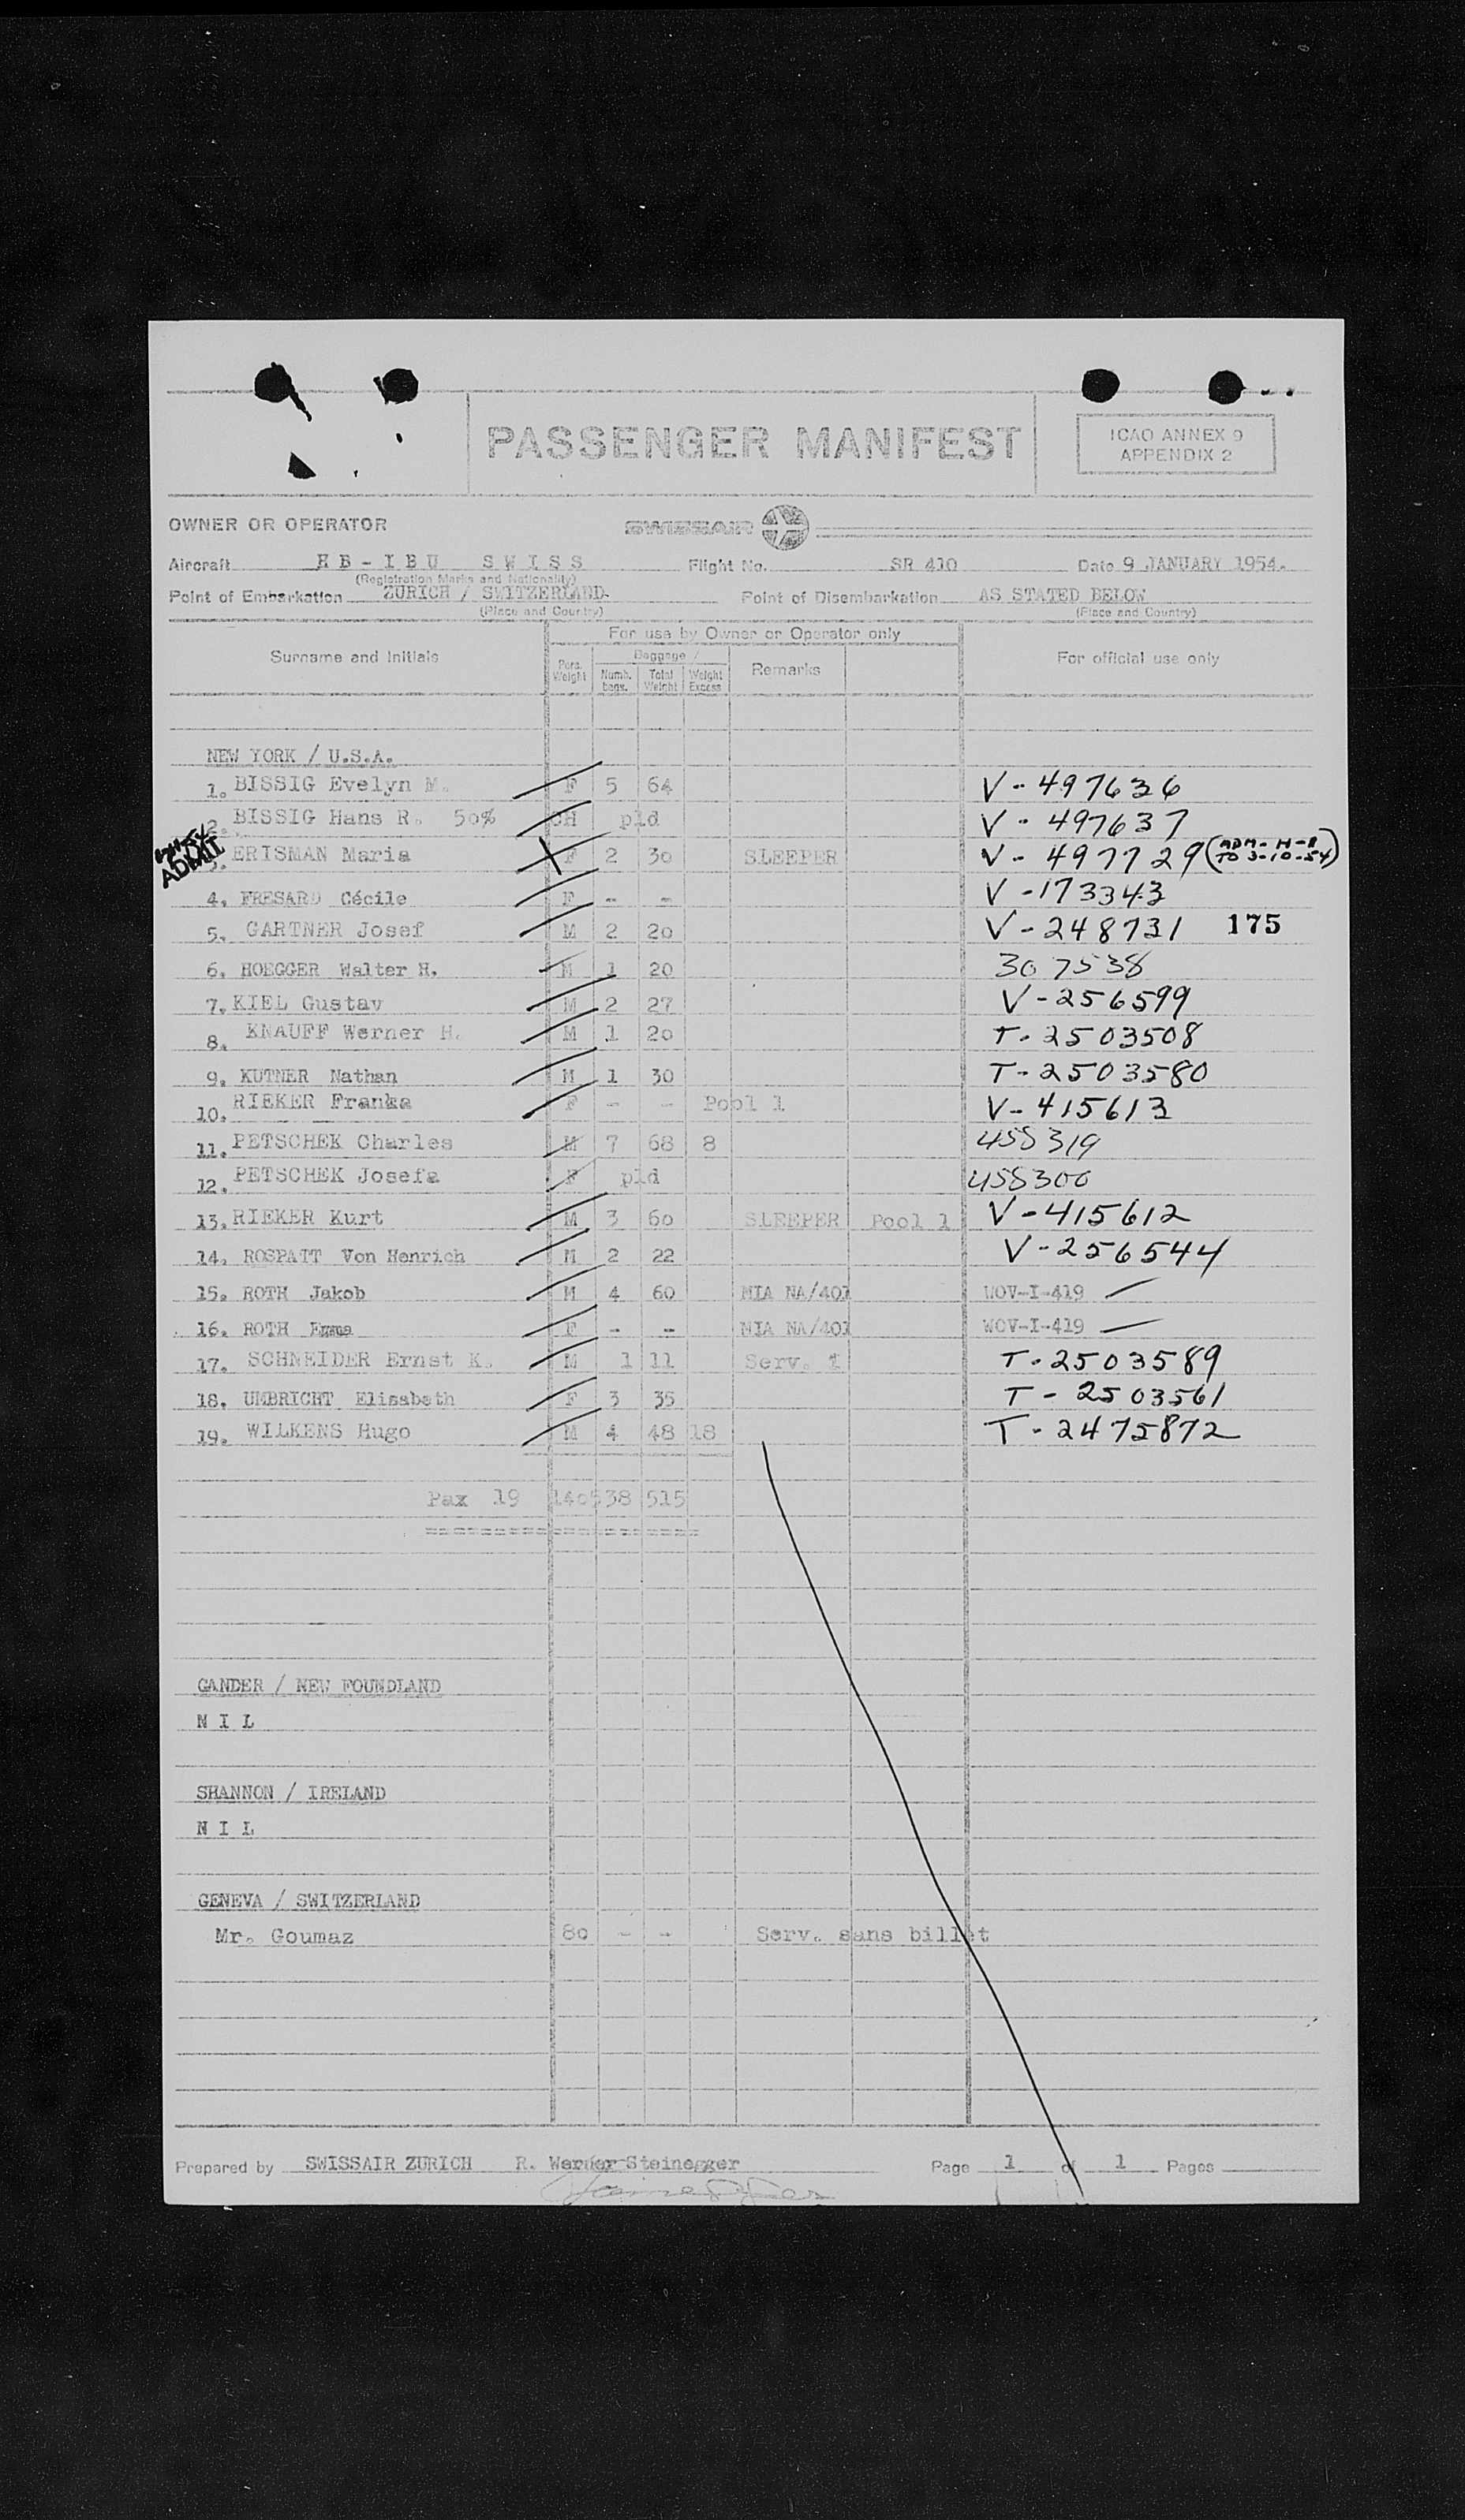 PASSENGER MANIFEST
ICAO ANNEX 9
APPENDIX 2
OWNER OR OPERATOR SWISSAIR
Aircraft HB-IBU SWISS Flight No. SR 410 Date 9 JANUARY 1954.
(Registration Marks and Nationality)
Point of Embarkation ZURICH / SWITZERLAND. Point of Disembarkation AS STATED BELOW
(Place and Country) (Place and Country)
For use by Owner or Operator only
Surname and Initials Pers. Weight Baggage / Numb. bags. Total Weight Weight Excess Remarks For official use only
NEW YORK / U.S.A.
1. BISSIG Evelyn M. F 5 64 V-497636
2. BISSIG Hans R. 50% CH pld V-497637
ADMIT 3. ERISMAN Maria F 2 30 SLEEPER V-497729 (ADM-H-R TO 3-10-54)
4. FRESARD Cécile F - - V-173343
5. GARTNER Josef M 2 20 V-248731 175
6. HOEGGER Walter H. M 1 20 307538
7. KIEL Gustav M 2 27 V-256599
8. KNAUFF Werner H. M 1 20 T-2503508
9. KUTNER Nathan M 1 30 T-2503580
10. RIEKER Franka F - - Pool 1 V-415613
11. PETSCHEK Charles M 7 68 8 458319
12. PETSCHEK Josefa F pld 458300
13. RIEKER Kurt M 3 60 SLEEPER Pool 1 V-415612
14. ROSPATT Von Henrich M 2 22 V-256544
15. ROTH Jakob M 4 60 MIA NA/401 WOV-I-419
16. ROTH Emma F - - MIA NA/401 WOV-I-419
17. SCHNEIDER Ernst K. M 1 11 Serv. 1 T-2503589
18. UMBRICHT Elisabeth F 3 35 T-2503561
19. WILKENS Hugo M 4 48 18 T-2475872
Pax 19 1405 38 515
GANDER / NEW FOUNDLAND
NIL
SHANNON / IRELAND
NIL
GENEVA / SWITZERLAND
Mr. Goumaz 80 - - Serv. sans billet
Prepared by SWISSAIR ZURICH R. Werner Steinegger Page 1 of 1 Pages